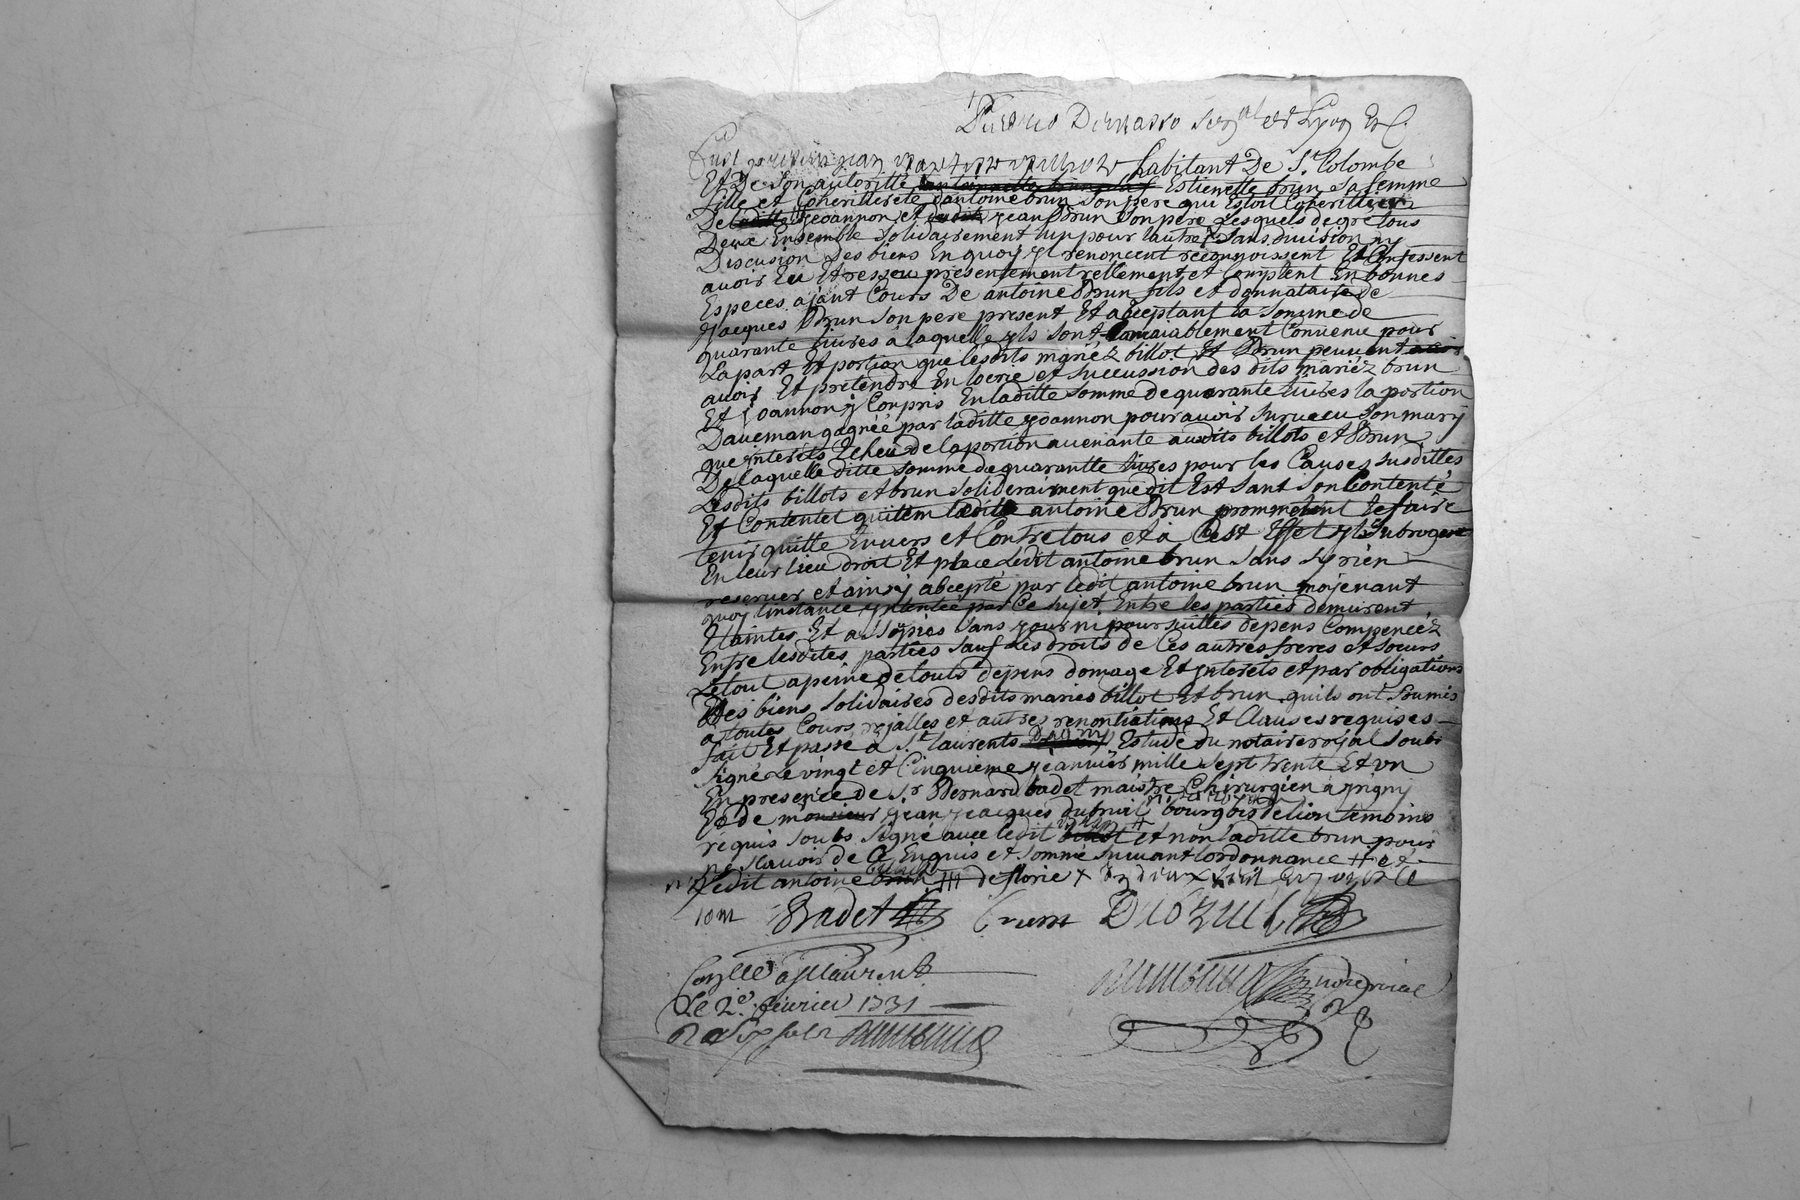 habitant De St Colombe
Et De Son autoritté Estienette brun Sa femme
fille et Coheritiere d'antoine brun Son pere qui Estoit Coheritier
De joannon et jean Brun Son pere Lesquels de gre tous
Deux Ensemble Solidairement lun pour lautre Sans division ny
Discusion Des biens En quoy renoncent reconnoissent Et Confessent
avoir Eu Et resseu presentement rellement et Comptent En bonnes
Especes ajant Cours De antoine Brun fils et donnataire de
Jacques Brun Son pere present Et abceptant la Somme de
quarante livres a laquelle yls sont amiablement Convenu pour
La part Et portion que lesdits mariéz billot Et Brun peuvent
avoir Et pretendre En loerie et Succussion des dits mariéz brun
Et joannon y Conpris En laditte Somme de quarante livres la portion
Daucman gagnéé par laditte joannon pour avoir Survecu Son mary
que ynterets de la portion avenante audits billots et Brun
De laquelle ditte Somme de quarantte livres pour les Causes Susdittes
Lesdits billots et brun Soliderairment que dit Est Sant Son Contenté
Et Contentet quittem ledit antoine Brun prommetent le faire
tenir quitte Envers et Contre tous et a Cest Effet yls Subrogent
En leur lieu droit Et place Ledit antoine brun Sans Sy rien
reserver et ainsy abcepté par ledit antoine brun mojenant
quoy linstance yntentée par Ce Sujet Entre les parties demurent
Etaintes Et assopies Sans pour suittes depens Compencéz
Entre lesdites parties Sauf Les droits de Ces autres freres et Soeurs
Le tout a peine de touts depens domage Et ynterets et par obligations
Des biens Solidaires desdits mariés billot Et brun quils ont Soumis
a toutes Cours rojalles et autres renontiations Et Clauses requises
fait Et passé a St laurents Estude du notaire rojal Soubs
Signé Le vingt et Cinquieme jeanvier mille Sept trente Et un
En presence de Sr Bernard badet maistre Chirurgien a grigny
Et de monsieur jean jeacques bourgois de lion temoins
requis Soubs Signé avec ledit et non laditte brun pour
ne Scavoir de Ce Enquis et Sommé Suivant lordonnance et
ledit antoine
Badet brun
a St laurent
Le 2e fevrier 1731